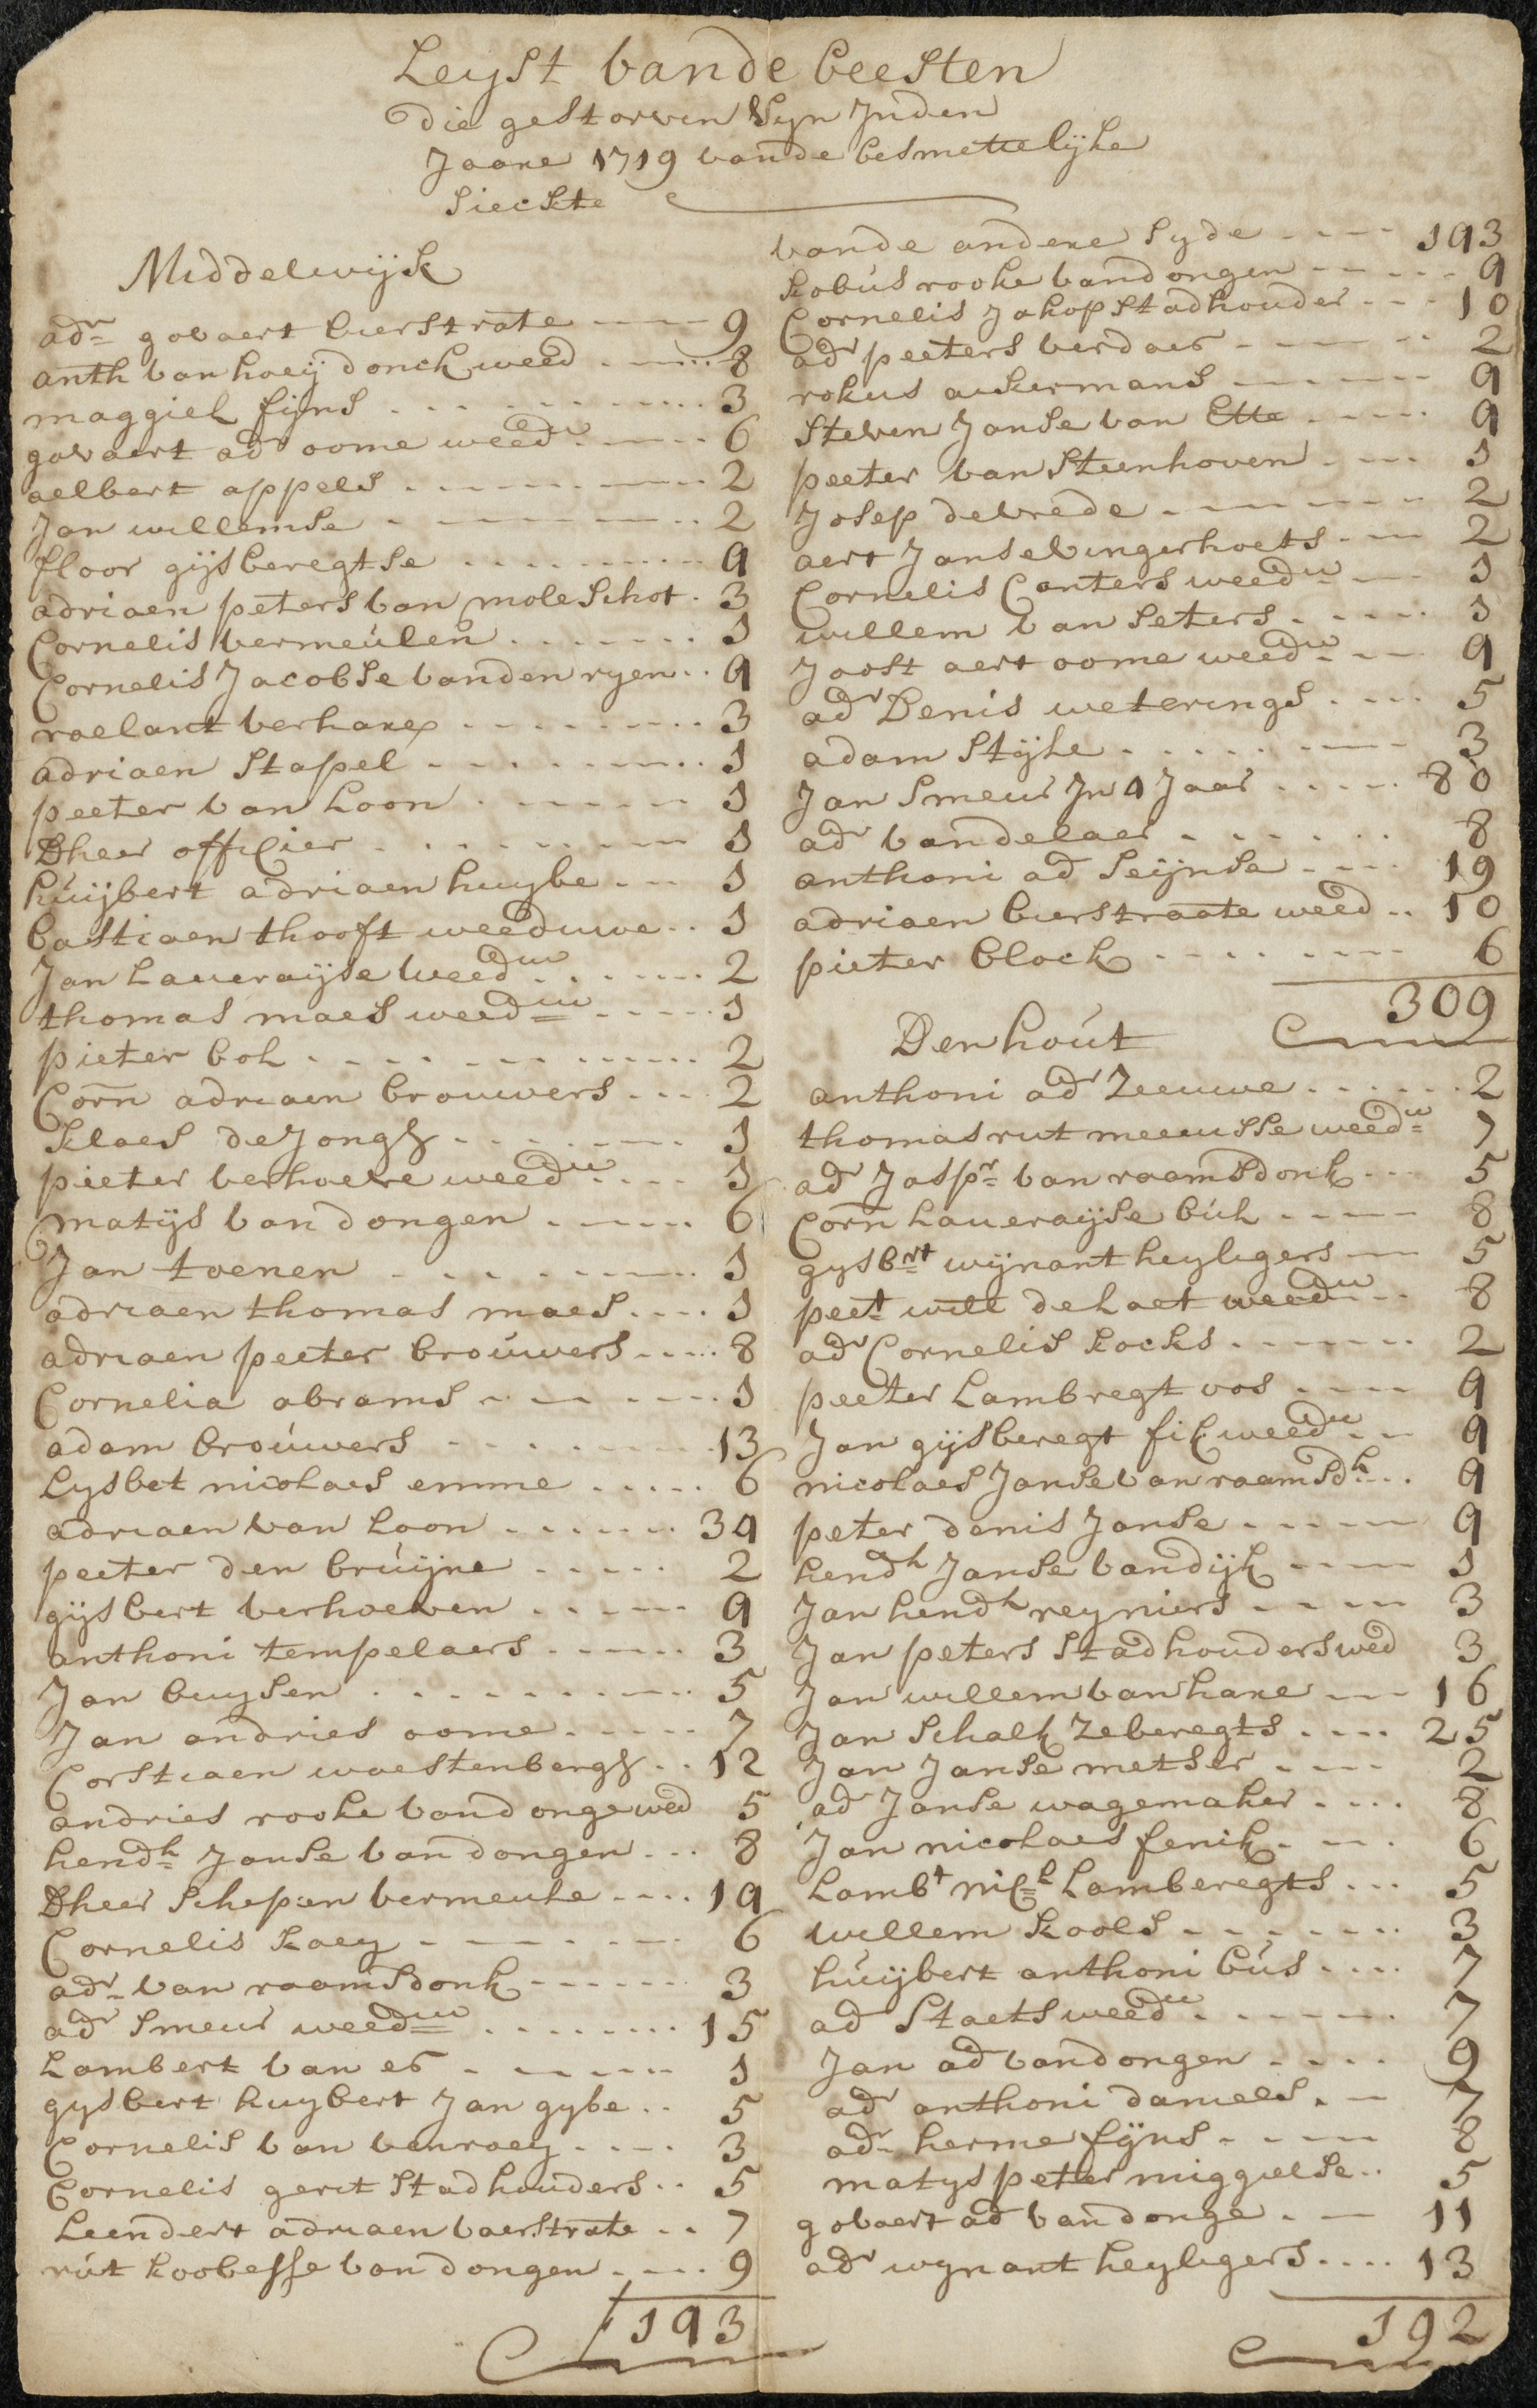 Leyst vande beesten
die gestorven Syn Inden
Jaare 1719 vande besmettelijke
Sieckte
Middelwijck
adr govaert buerstrate 9
anth van hoeij donck weed 8
maggiel fijns 3
govaert adr oome weedu 6
aelbert appels 2
Jan willemse 2
floor gijsberegtse 4
adriaen peters van moleschot 3
Cornelis vermeulen 1
Cornelis Jacobse vanden ryen 4
roelant verhare 3
adriaen Stapel 1
peeter van Loon 1
Dheer officier 1
huijbert adriaen huybe 1
bastiaen thooft weeduwe 1
Jan Laueraijse Weeduw 2
thomas maes weeduw 1
pieter bol 2
Corn adriaen brouwers 2
Klaes de Jongh 1
pieter verhoeve weeduw 1
matijs van dongen 6
Jan toenen 1
adriaen thomas maes 1
adriaen peeter brouwers 8
Cornelia abrams 1
adam brouwers 13
Lysbet nicolaes emme 6
adriaen van Loon 34
peeter den bruijne 2
gijsbert verhoeven 4
anthoni tempelaers 3
Jan buysen 5
Jan andries oome 7
Corstiaen woestenbergh 12
andries rooke vand onge wed 5
hendk Janse van dongen 8
Dheer Schepen vermeule 14
Cornelis Kaey 6
adr van raamsdonk 3
adr Smeur weeduw 15
Lambert van es 1
gysbert huybert Jan gybe 5
Cornelis van venroey 3
Cornelis gerit Stadhouders 5
Leendert adriaen baerstrate 7
rut koobesse van dongen 9
193
vande andere Syde 193
kobus rooke vandongen 4
Cornelis Jakop Stadhouder 10
adr peeters verdaes 2
rokus ackermans 4
Steven Janse van Etta 4
peeter van Steenhoven 1
Josep devrede 2
aert Janse vingerhoets 2
Cornelis Canters weedu 1
willem van Seters 1
Joost aert oome weedu 4
adr Denis weterings 5
adam Stijke 3
Jan Smeur In 4 Jaar 80
adr vandelaer 8
anthoni ad Seijnse 14
adriaen buerstraate weed 10
pieter block 6
309
Den hout
anthoni adr Zeeuwe 2
thomas rut meeusse weedu 7
adr Jaspr van raamsdonk 5
Corn Laueraijse buk 8
gysbrt wijnant heyligers 5
peet will de Laet weedu 8
adr Cornelis kocks 2
peeter Lambregt vos 4
Jan gijsberegt fik weedu 4
nicolaes Janse van raamsdk 4
peter denis Janse 4
hendk Janse vandijk 1
Jan hendk reyniers 3
Jan peters Stadhouders wed 3
Jan willem van hare 16
Jan Schalk Zeberegts 25
Jan Janse metser 2
ad Janse wagemaker 8
Jan nicolaes fenik 6
Lambt nicls Lamberegts 5
willem kools 3
huijbert anthoni bus 7
ad Staets weedu 7
Jan ad vandongen 9
adr anthoni daniels 7
adr herme fijns 8
matys peter miggielse 5
govaert ad van donge 11
adr wynant heyligers 13
192